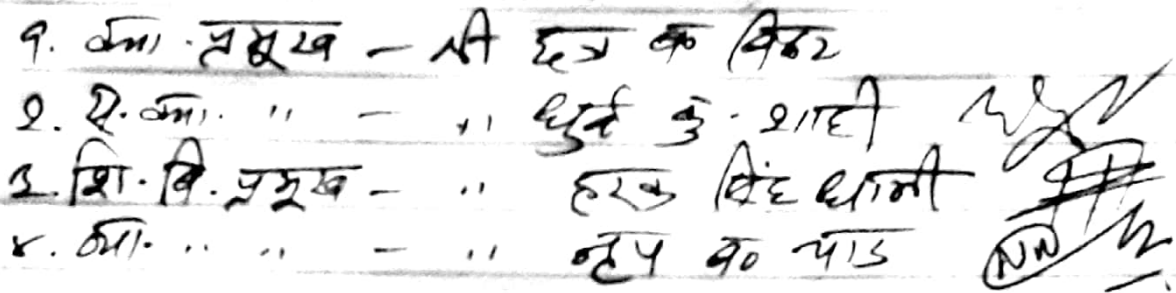 १. का. प्रमुख - श्री छत्र ब० विष्ट
२. स. का. " - " धुर्व कु. शाही
३. शि. वि. प्रमुख - " हरक सिंह धामी
४. का. " " - " नृप ब० चाड NN